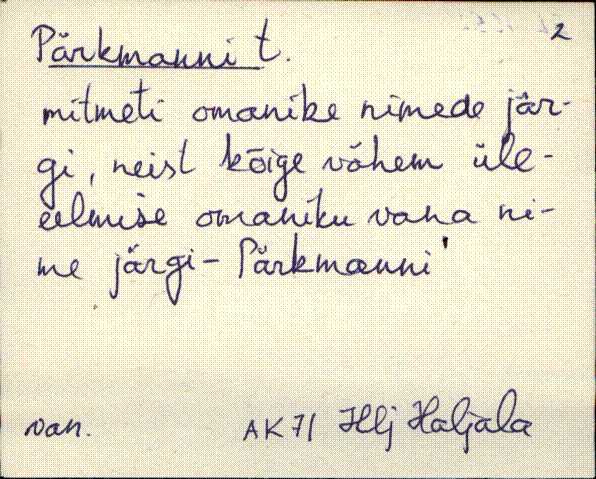 2
Pärkmanni t.
mitmeti omanike nimede jär-
gi, neist kõige vähem üle-
eelmise omaniku vana ni-
me järgi - Pärkmanni'
van. AK 71 Hlj Haljala